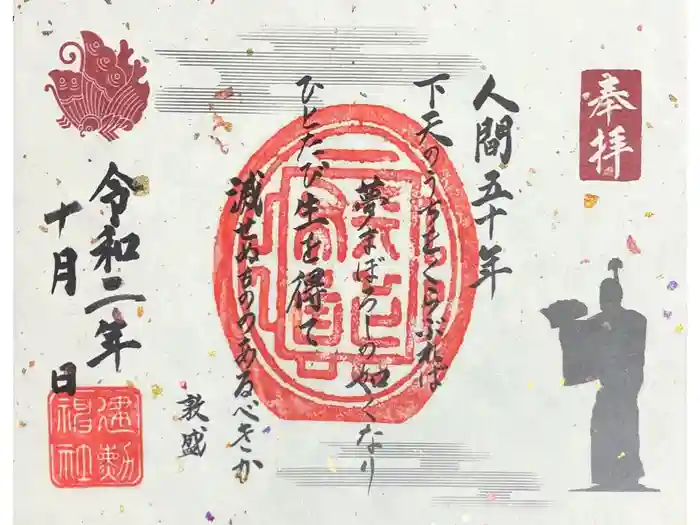 奉拝
人間五十年
下天のうちをくらぶれば
夢まぼろしの如くなり
ひとたび生を得て
滅せぬもののあるべきか
敦盛
令和二年
十月 日
建勲神社